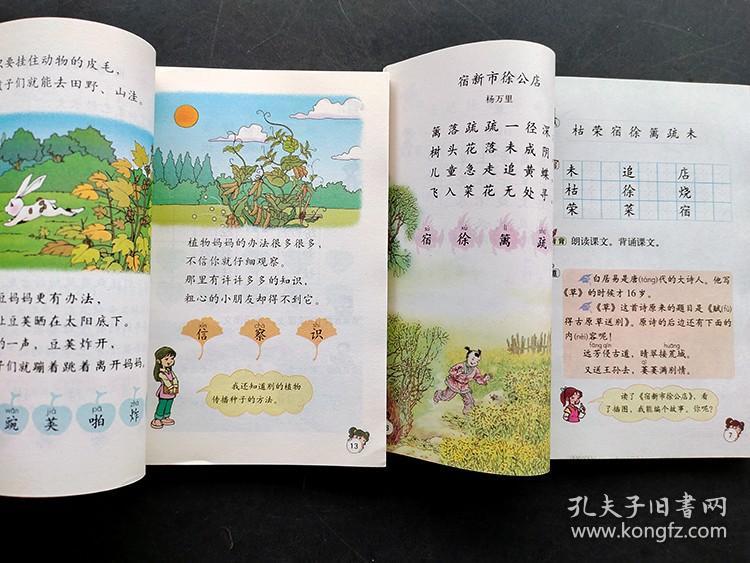 要挂住动物的皮毛，
子们就能去田野、山洼。
豆妈妈更有办法，
让豆荚晒在太阳底下。
的一声，豆荚炸开，
们就蹦着跳着离开妈妈。
wān jiá pā zhà
豌 荚 啪 炸
植物妈妈的办法很多很多，
不信你就仔细观察。
那里有许许多多的知识，
粗心的小朋友却得不到它。
xìn chá shi
信 察 识
我还知道别的植物
传播种子的方法。
13
宿新市徐公店
杨万里
篱落疏疏一径深
树头花落未成阴
儿童急走追黄蝶
飞入菜花无处寻
sù xú lí
宿 徐 篱 疏
枯 荣 宿 徐 篱 疏 未
未 追 店
枯 徐 烧
荣 菜 宿
朗读课文。背诵课文。
白居易是唐(táng)代的大诗人。他写
《草》的时候才16岁。
《草》这首诗原来的题目是《赋(fù)
得古原草送别》。原诗的后边还有下面的
内(nèi)容呢！
fāng qīn huāng
远芳侵古道，晴翠接荒城。
又送王孙去，萋萋满别情。
读了《宿新市徐公店》，看
了插图，我能编个故事。你呢？
7
孔夫子旧书网
www.kongfz.com